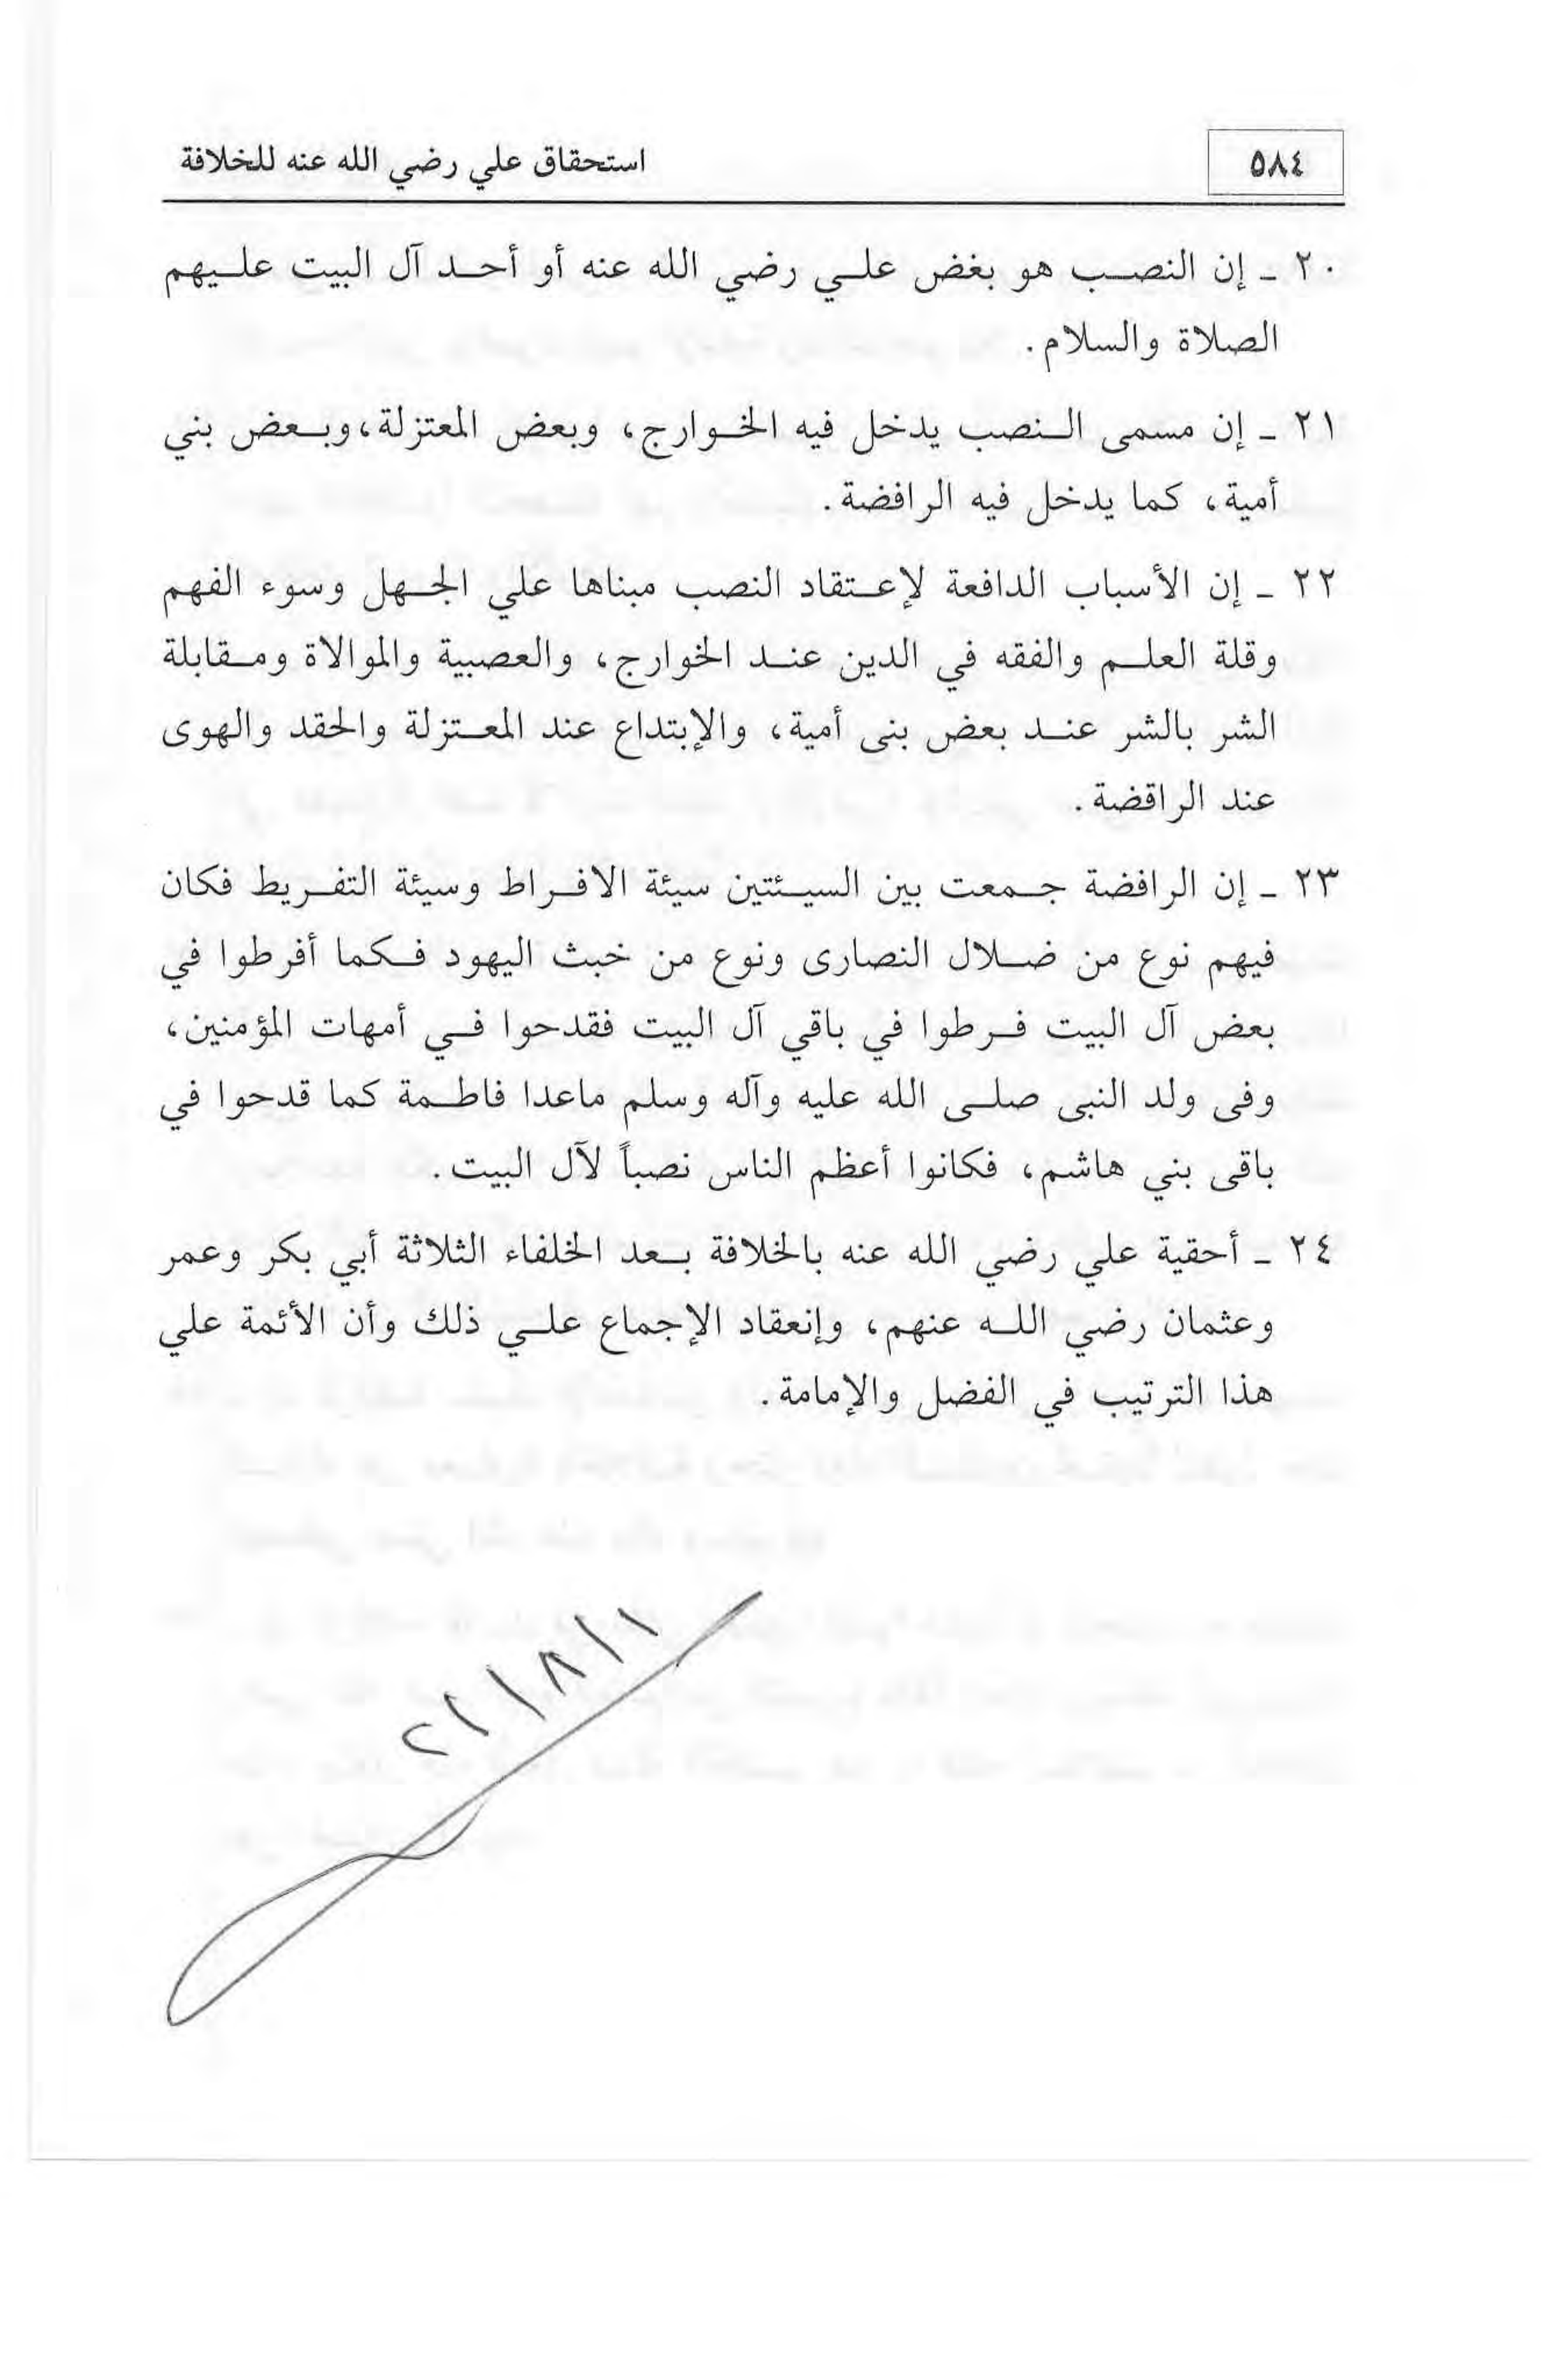 ٥٨٤
استحقاق علي رضي الله عنه للخلافة
٢٠ ـ إن النصب هو بغض علي رضي الله عنه أو أحد آل البيت عليهم
الصلاة والسلام .
٢١ ـ إن مسمى النصب يدخل فيه الخوارج، وبعض المعتزلة، وبعض بني
أمية، كما يدخل فيه الرافضة.
٢٢ ـ إن الأسباب الدافعة لإعتقاد النصب مبناها علي الجهل وسوء الفهم
وقلة العلم والفقه في الدين عند الخوارج، والعصبية والموالاة ومقابلة
الشر بالشر عند بعض بنى أمية، والإبتداع عند المعتزلة والحقد والهوى
عند الراقضة.
٢٣ ـ إن الرافضة جمعت بين السيئتين سيئة الافراط وسيئة التفريط فكان
فيهم نوع من ضلال النصارى ونوع من خبث اليهود فكما أفرطوا في
بعض آل البيت فرطوا في باقي آل البيت فقدحوا في أمهات المؤمنين،
وفى ولد النبى صلى الله عليه وآله وسلم ماعدا فاطمة كما قدحوا في
باقى بني هاشم، فكانوا أعظم الناس نصباً لآل البيت.
٢٤ ـ أحقية علي رضي الله عنه بالخلافة بعد الخلفاء الثلاثة أبي بكر وعمر
وعثمان رضي الله عنهم، وإنعقاد الإجماع علي ذلك وأن الأئمة علي
هذا الترتيب في الفضل والإمامة.
٢١/٨/١